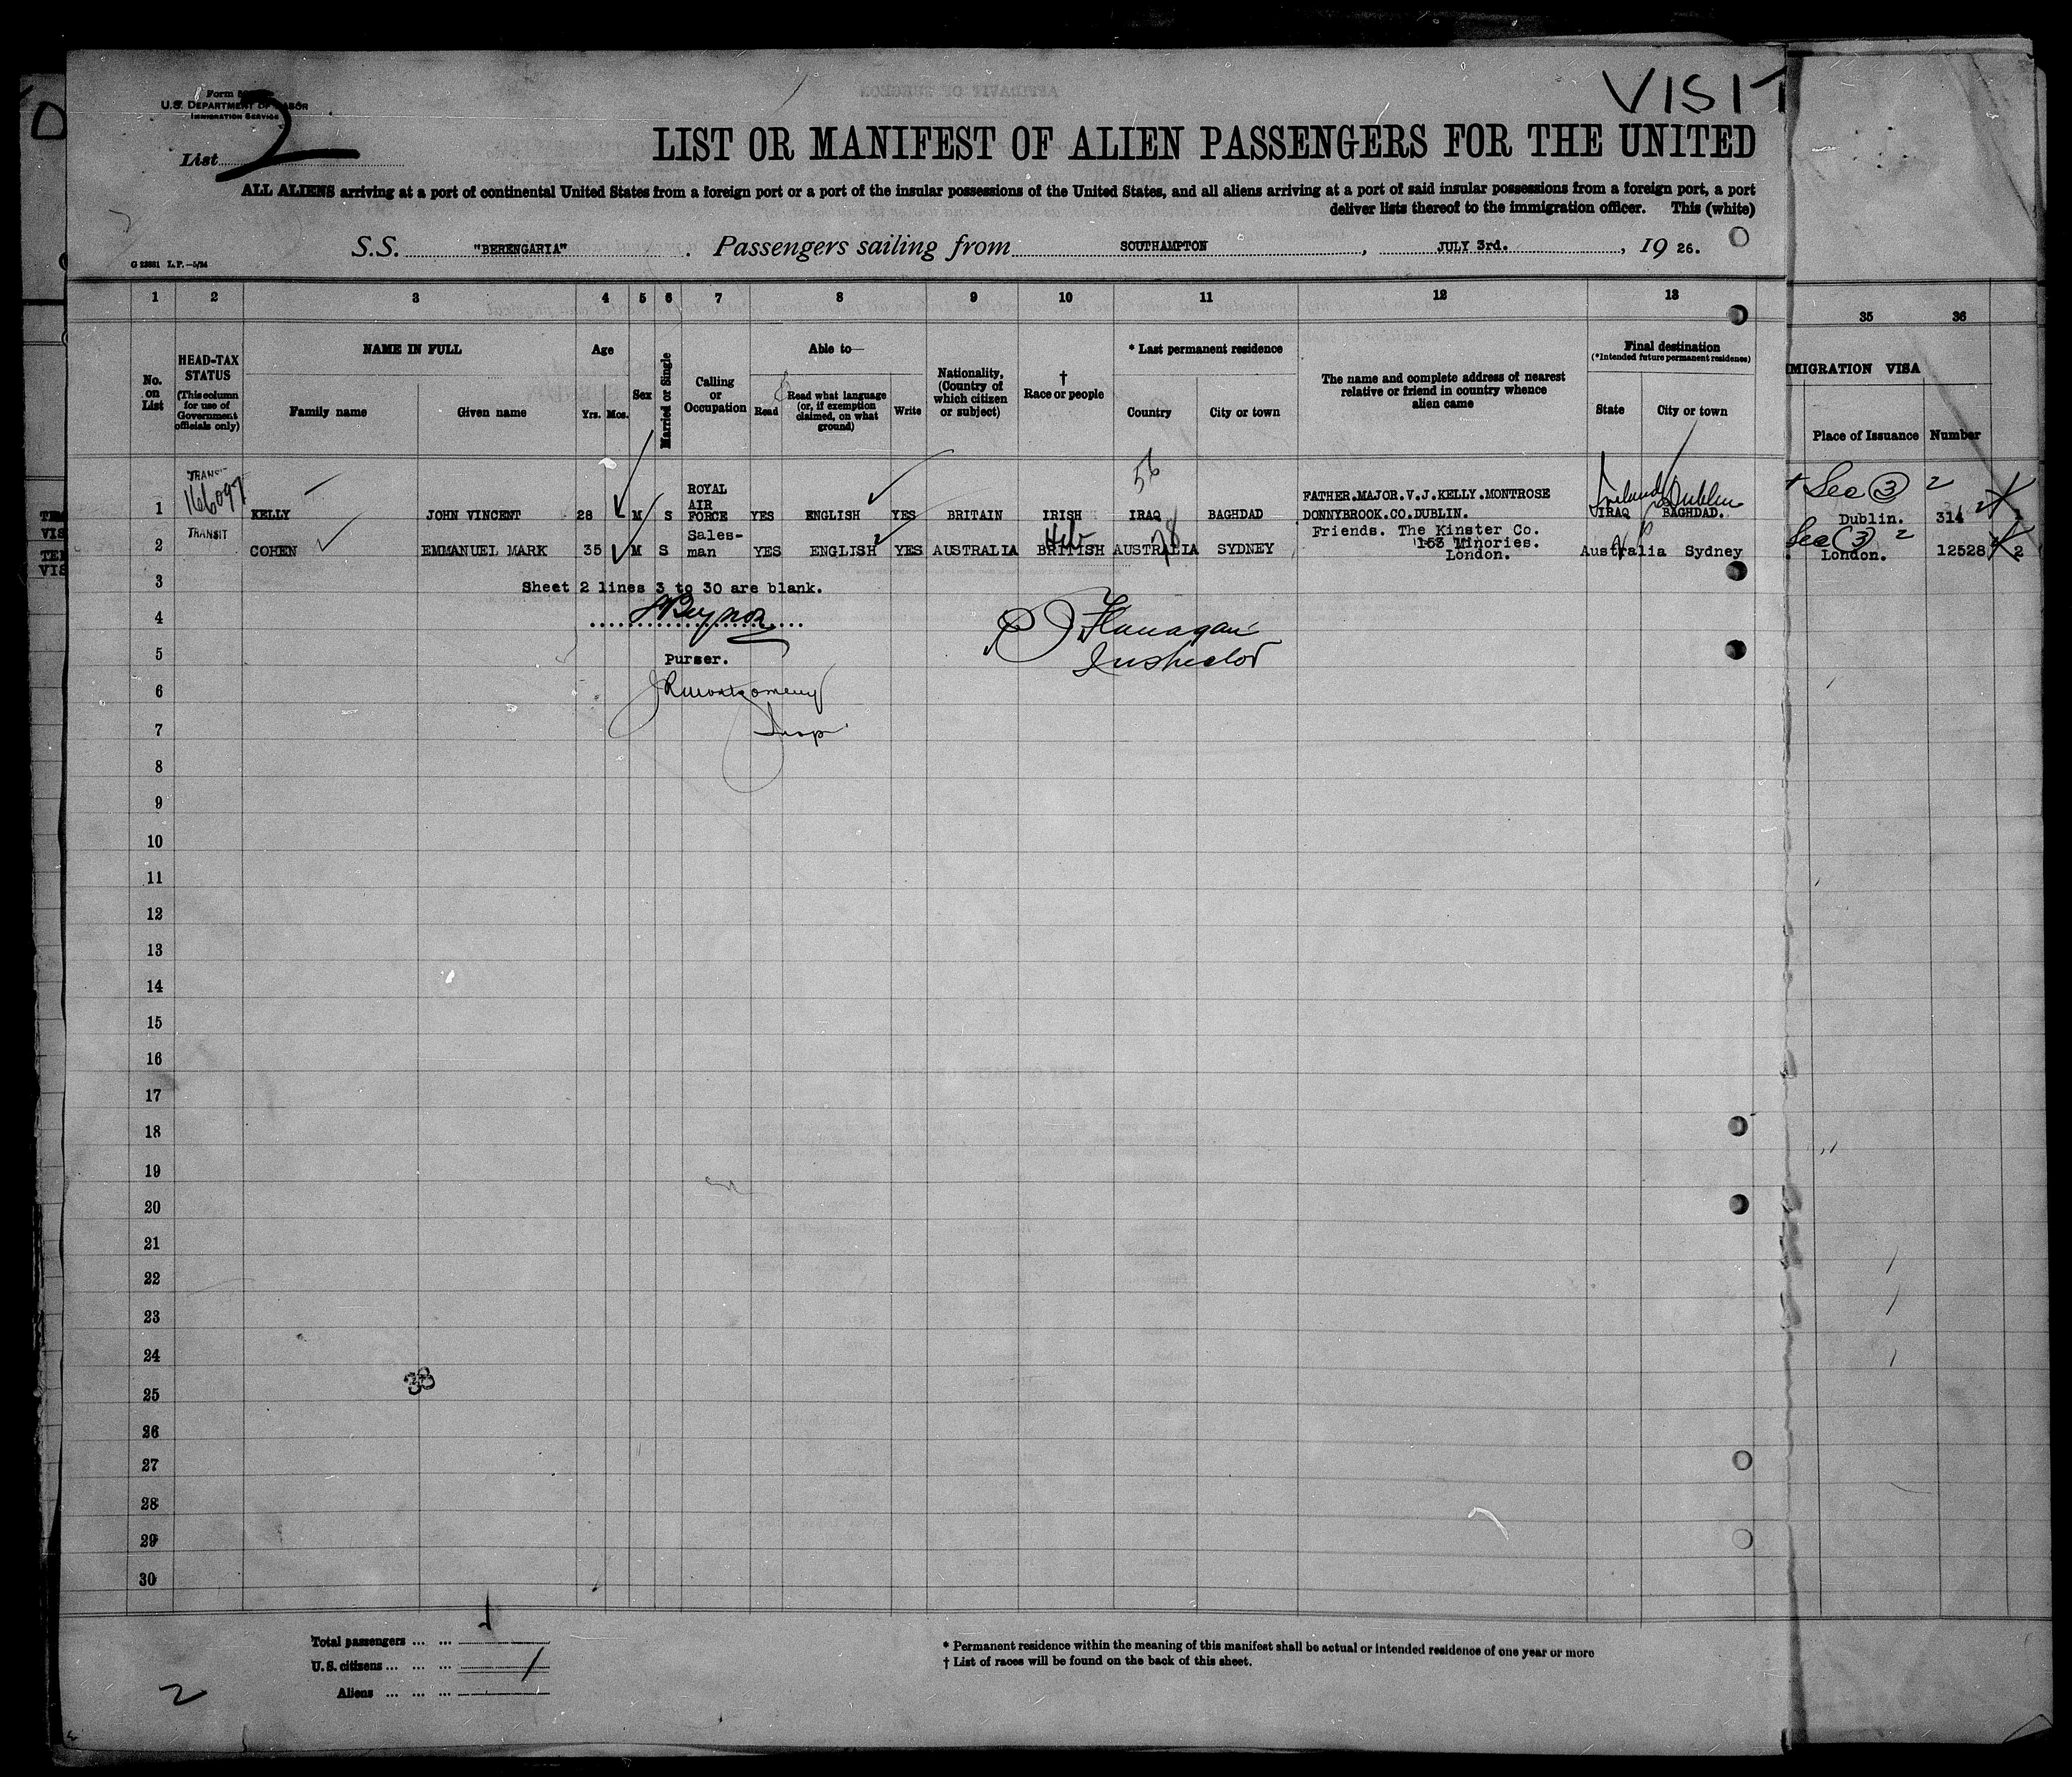 VISIT
Form
U.S. DEPARTMENT OF LABOR
IMMIGRATION SERVICE
List 2
LIST OR MANIFEST OF ALIEN PASSENGERS FOR THE UNITED
ALL ALIENS arriving at a port of continental United States from a foreign port or a port of the insular possessions of the United States, and all aliens arriving at a port of said insular possessions from a foreign port, a port
deliver lists thereof to the immigration officer. This (white)
S.S. "BERENGARIA". Passengers sailing from SOUTHAMPTON, JULY 3rd., 19 26.
G 23881 L.P.—5/24
1 2 3 4 5 6 7 8 9 10 11 12 13 35 36
No. on List
HEAD-TAX STATUS (This column for use of Government officials only)
NAME IN FULL
Family name Given name
Age
Yrs. Mos.
Sex
Married or Single
Calling or Occupation
Able to—
Read Read what language (or, if exemption claimed, on what ground) Write
Nationality, (Country of which citizen or subject)
† Race or people
* Last permanent residence
Country City or town
The name and complete address of nearest relative or friend in country whence alien came
Final destination
(*Intended future permanent residence)
State City or town
MIGRATION VISA
Place of Issuance Number
TRANSIT
166097
56
Ireland Dublin
See 3 2
1 KELLY JOHN VINCENT 28 M S ROYAL AIR FORCE YES ENGLISH YES BRITAIN IRISH IRAQ BAGHDAD FATHER.MAJOR.V.J.KELLY.MONTROSE DONNYBROOK.CO.DUBLIN. IRAQ BAGHDAD. Dublin. 314 1
TRANSIT
Heb
See 3 2
2 COHEN EMMANUEL MARK 35 M S Sales-man YES ENGLISH YES AUSTRALIA BRITISH AUSTRALIA SYDNEY Friends. The Kinster Co. 153 Minories. London. Australia Sydney London. 12528 2
3
Sheet 2 lines 3 to 30 are blank.
4
P J Flanagan
5
Purser.
Inspector
6
JR Montgomery
7
Insp
8
9
10
11
12
13
14
15
16
17
18
19
20
21
22
23
24
38
25
26
27
28
29
30
Total passengers ... ...
U.S. citizens ... ... ...
Aliens ... ... ...
* Permanent residence within the meaning of this manifest shall be actual or intended residence of one year or more
† List of races will be found on the back of this sheet.
2